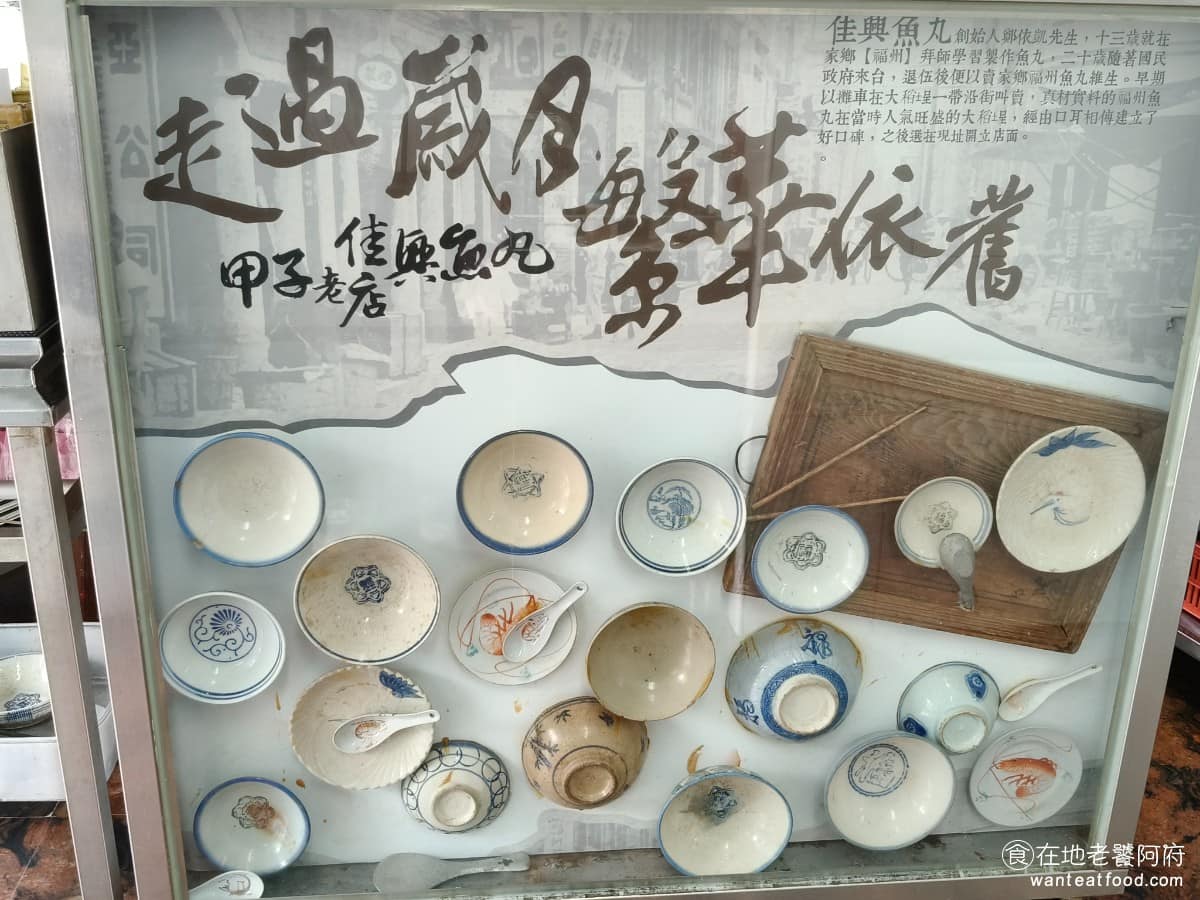 佳興魚丸 創始人鄉依凱先生，十三歲就在
家鄉【福州】拜師學習製作魚丸，二十歲隨著國民
政府來台，退伍後便以賣家鄉福州魚丸維生。早期
以攤車在大稻埕一帶沿街叫賣，真材實料的福州魚
丸在當時人氣旺盛的大稻埕，經由口耳相傳建立了
好口碑，之後選在現址開立店面。
。
走過歲月繁華依舊
甲子老店佳興魚丸
亞
公
祠
食在地老饕阿府
wanteatfood.com